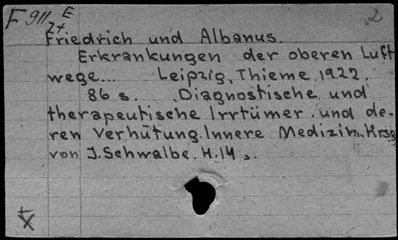 F 911 E 2
2+
Friedrich und Albanus.
Erkrankungen der oberen Luft
wege... Leipzig, Thieme, 1922.
86 s. Diagnostische und
therapeutische Irrtümer und de-
ren Verhütung. Innere Medizin. Hrsg
von J. Schwalbe. H. 14.